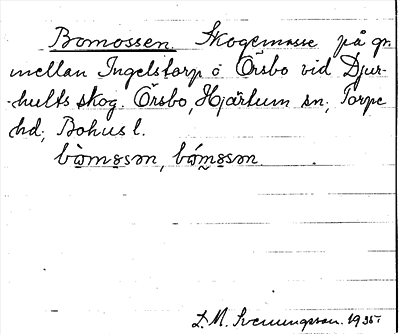 Bomossen. Skogsmosse på gr.
mellan Ingelstorp o Örsbo vid Djur-
hults skog. Örsbo, Hjärtum sn; Torpe
hd; Bohusl.
S. M. Svenungsson. 1935